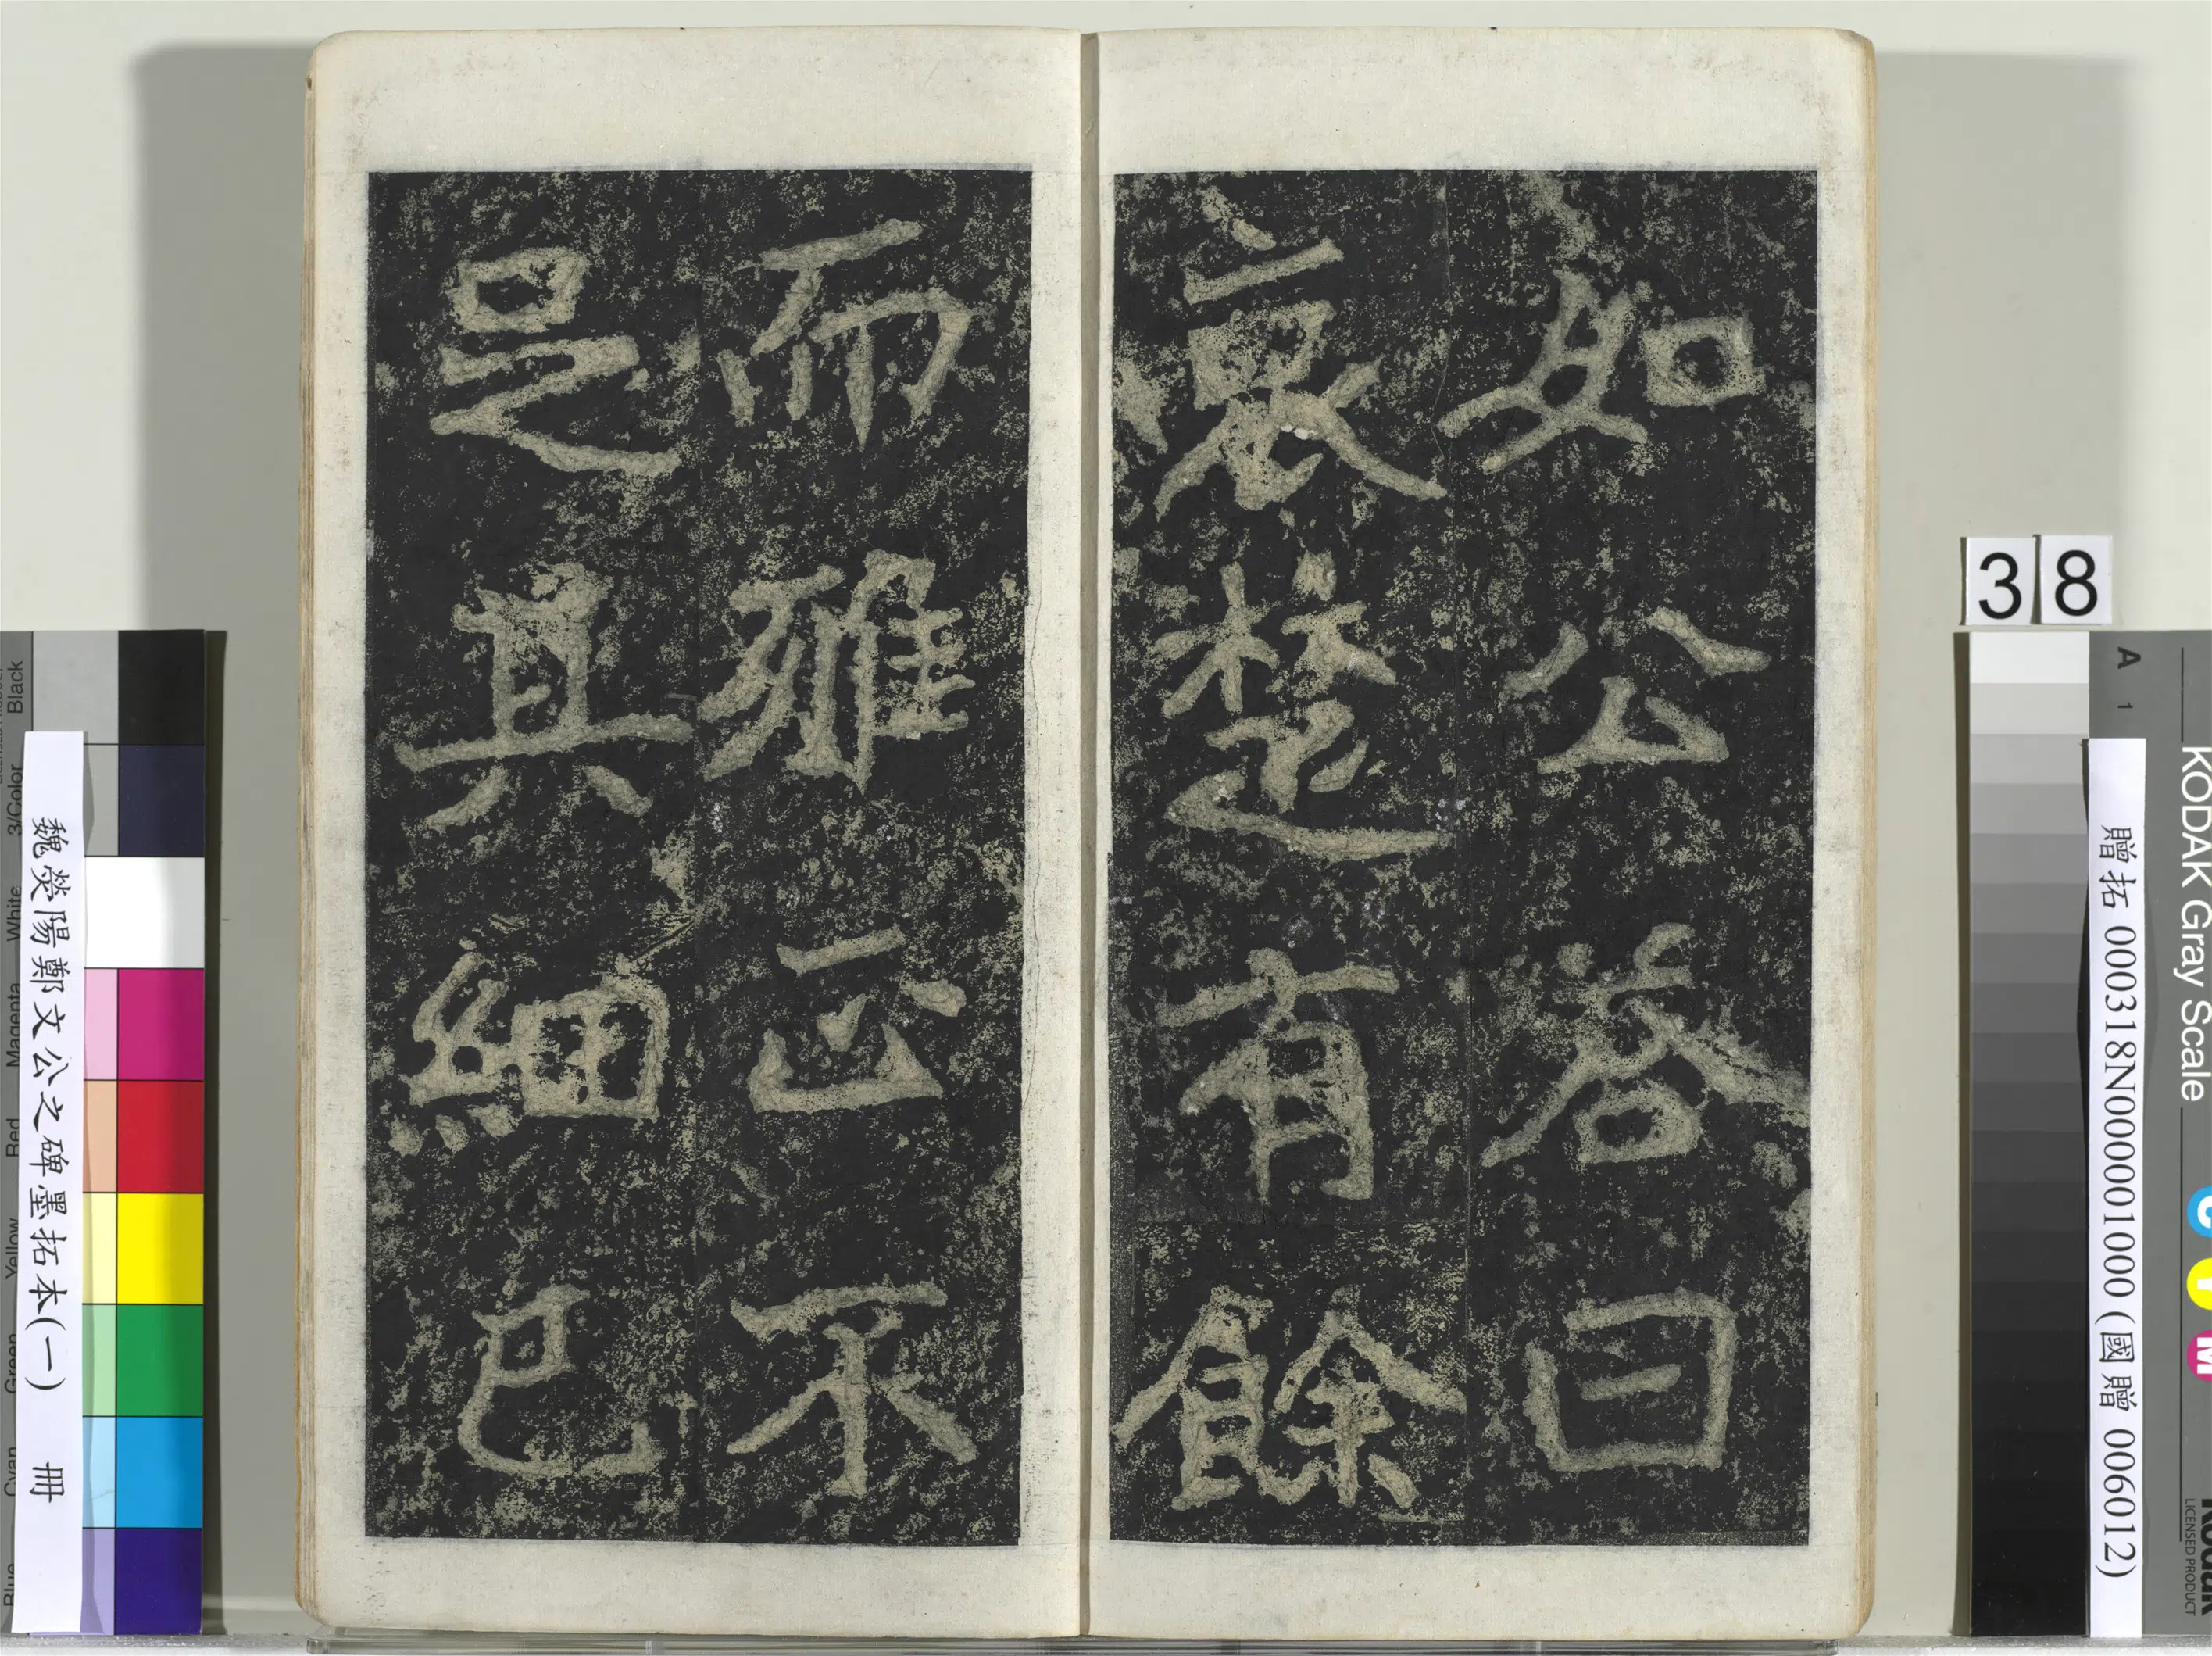 如公荅曰
哀楚有餘
而雅正不
足其細已
魏滎陽鄭文公之碑墨拓本(一) 冊
贈拓 000318N0000001000 (國贈 006012)
38
A 1
KODAK Gray Scale
C Y M
Kodak
LICENSED PRODUCT
Black
3/Color
White
Magenta
Red
Yellow
Green
Cyan
Blue